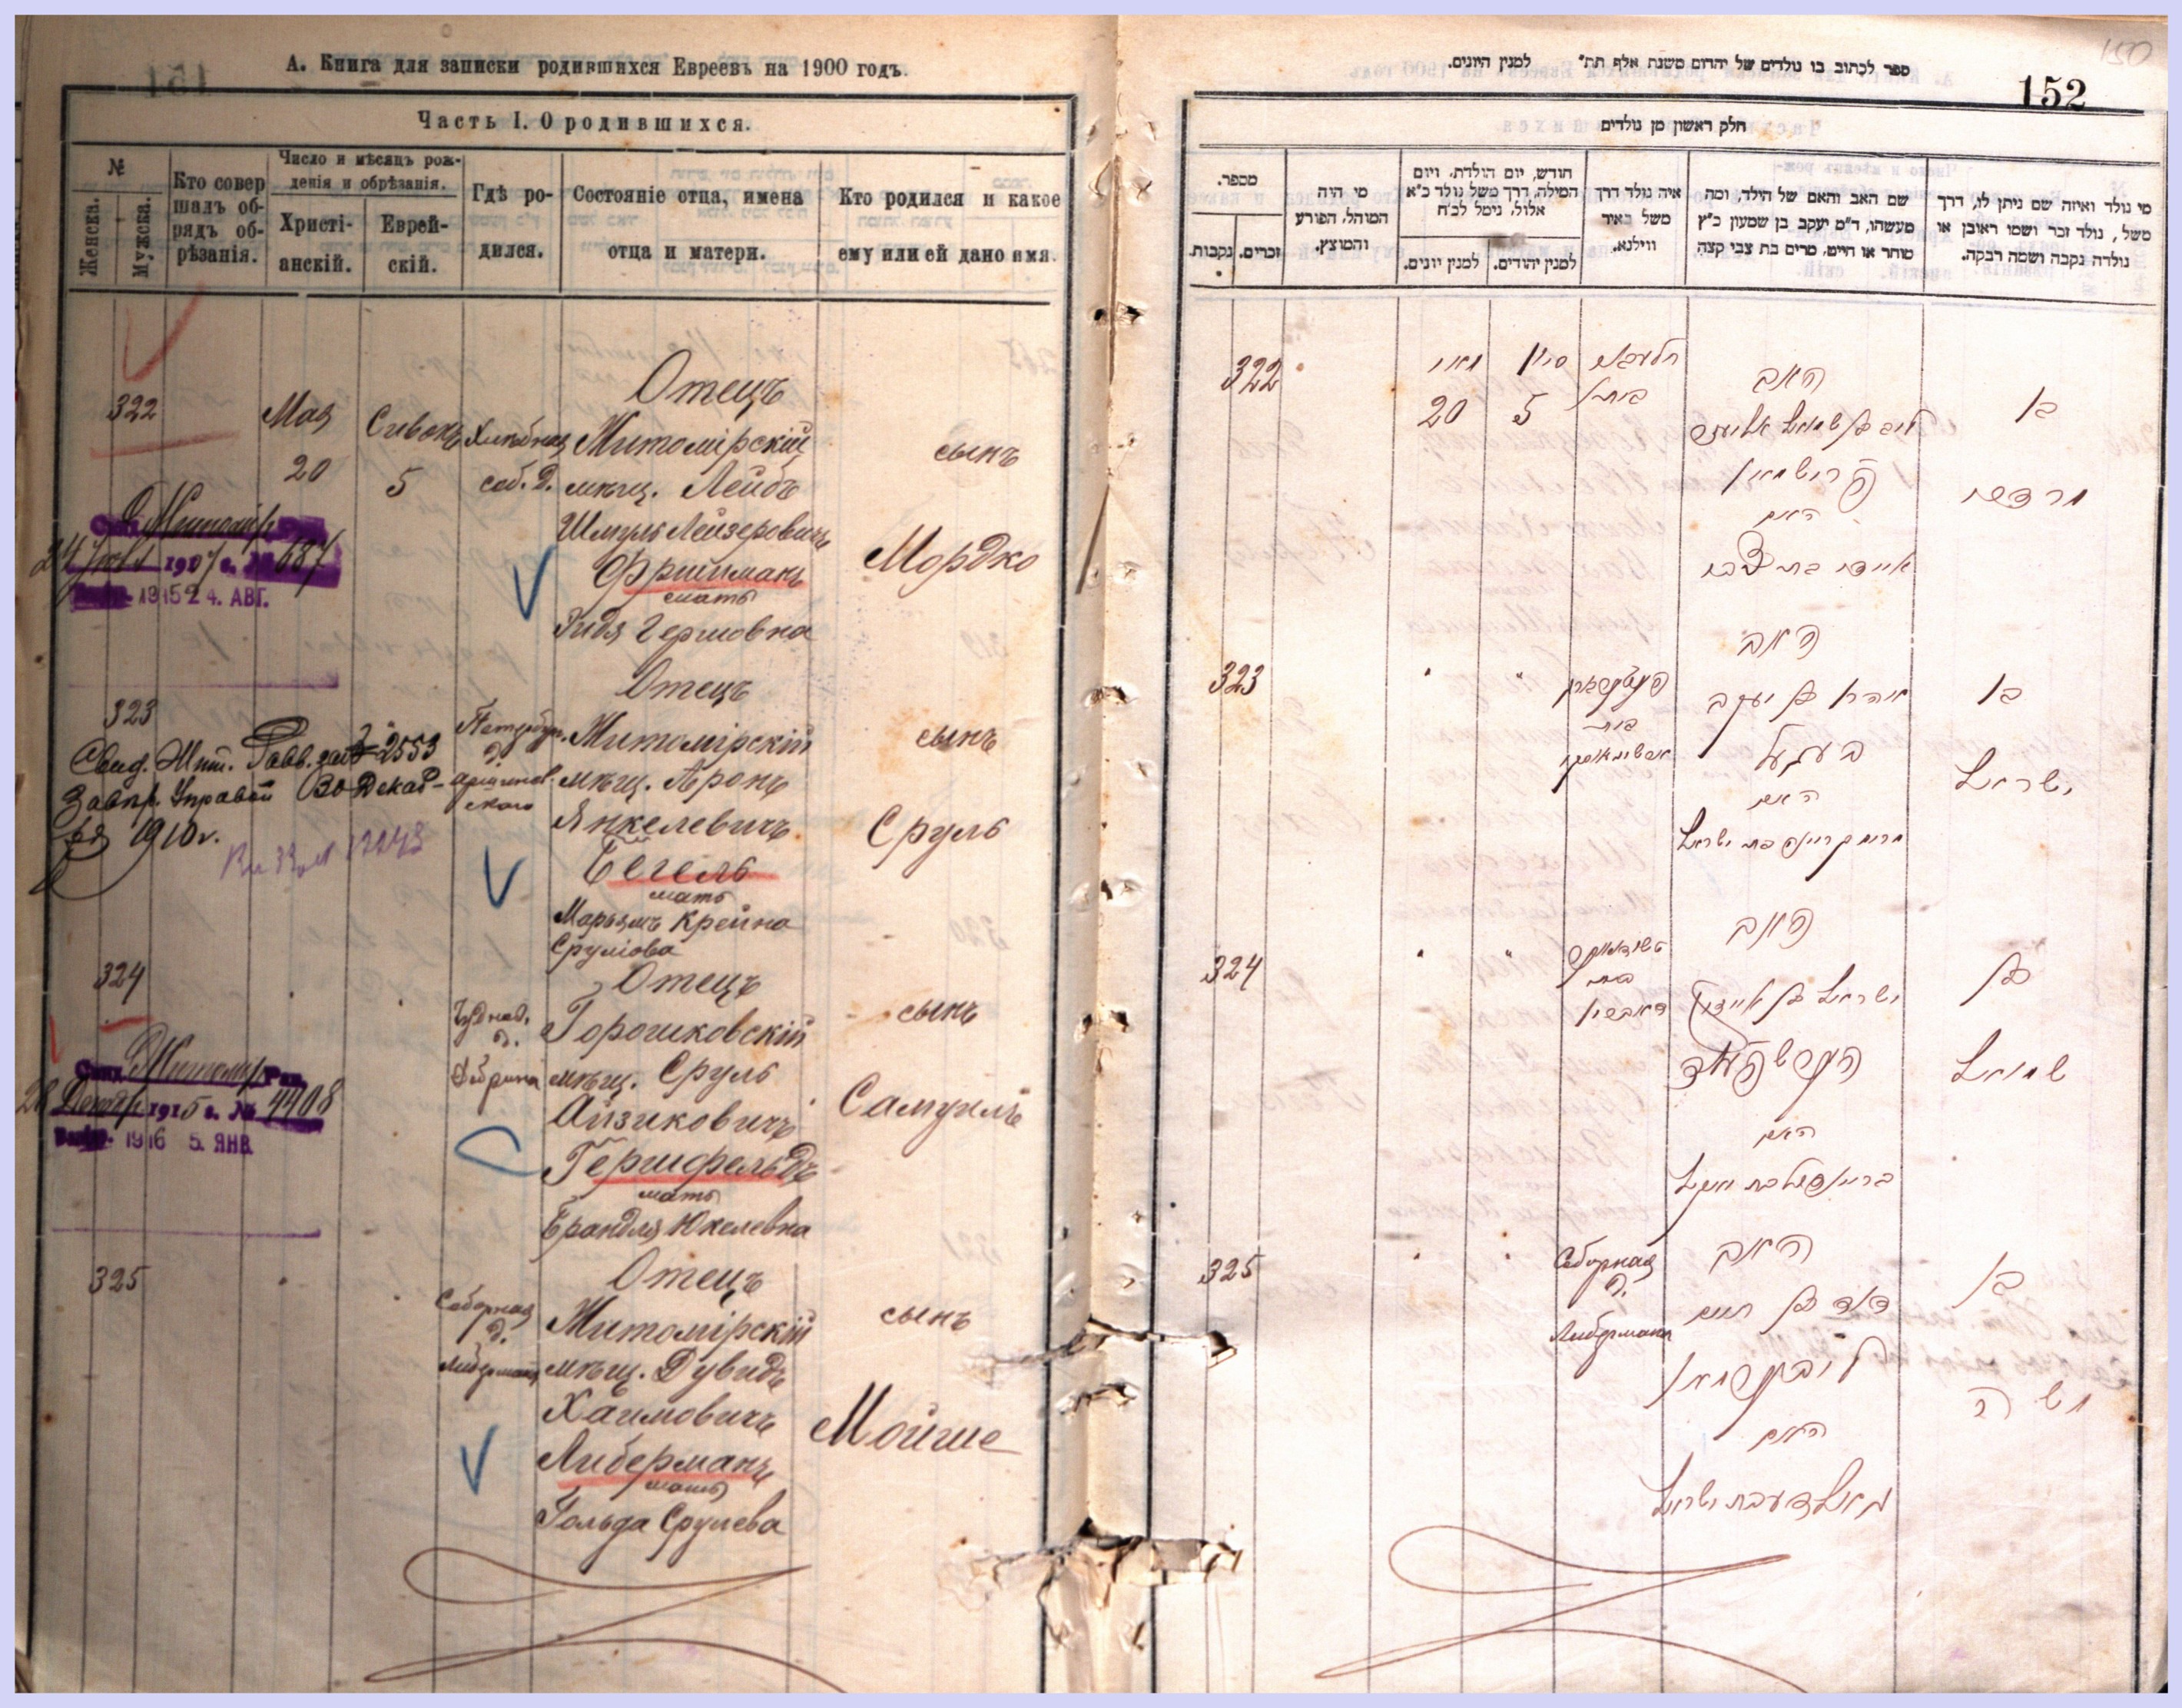 А. Книга для записки родившихся Евреевъ на 1900 годъ.
Часть I. О родившихся.
№
Женска.
Мужска.
Кто совер
шалъ об-
рядъ об-
рѣзанія.
Число и мѣсяцъ рож-
денія и обрѣзанія.
Христі-
анскій.
Еврей-
скій.
Гдѣ ро-
дился.
Состояніе отца, имена
отца и матери.
Кто родился и какое
ему или ей дано имя.
322
Мая
20
Сивонъ
5
Хлѣбная
соб. д.
Отецъ
Житомірскій
мѣщ. Лейбъ
Шмуль Лейзеровичъ
Фришманъ
мать
Гидя Гершовна
сынъ
Мордко
1907 г. № 687
1915 24. АВГ.
323
Свид. Жит. Равв. за № 2553
Завпр. Управой 30 Декаб-
ря 1910 г.
Петербург.
д.
Отецъ
Житомірскій
мѣщ. Аронъ
Янкелевичъ
Бегель
мать
Марьямъ Крейна
Сруліова
сынъ
Сруль
324
Чуднов.
д.
Отецъ
Горошковскій
мѣщ. Сруль
Айзиковичъ
Гершфельдъ
мать
Брандля Юкелевна
сынъ
Самуилъ
1915 г. № 4408
1916 5. ЯНВ.
325
Соборная
д.
Либермана
Отецъ
Житомірскій
мѣщ. Дувидъ
Хаимовичъ
Либерманъ
мать
Гольда Срулева
сынъ
Мойше
150
152
ספר לכתוב בו נולדים של יהדום משנת אלף תת״ למנין היונים.
חלק ראשון מן נולדים
מספר.
זכרים.
נקבות.
מי היה
המוהל, הפורע
והמוצץ.
חודש, יום הולדת, ויום
המילה, דרך משל נולד כ״א
אלול, נימל לכ״ח
למנין יונים.
למנין יהודים.
איה נולד דרך
משל באיר
ווילנא.
שם האב והאם של הילד, ומה
מעשהו, ד״מ יעקב בן שמעון כ״ץ
סוחר או חייט, מרים בת צבי קצה
מי נולד ואיזה שם ניתן לו, דרך
משל, נולד זכר ושמו ראובן או
נולדה נקבה ושמה רבקה.
322
מאי
20
סיון
5
האב
ליב בן שמואל אליעזר
פרישמאן
האם
איידי בת צבי
בן
מרדכי
323
האב
אהרן בן יעקב
בעגעל
האם
מרים קריינע בת ישראל
בן
ישראל
324
האב
ישראל בן אייזיק
הערשפעלד
האם
בריינדל בת יוקיל
בן
שמואל
325
Соборная
д.
Либермана
האב
דוד בן חיים
ליבערמאן
האם
גאלדע בת ישראל
בן
משה